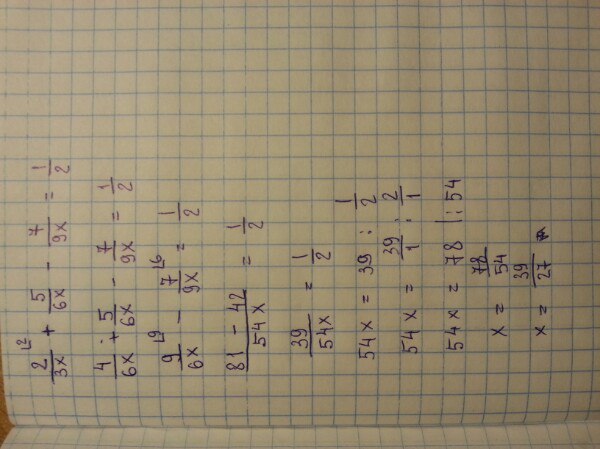 2/3x⌊2 + 5/6x - 7/9x = 1/2
4/6x + 5/6x - 7/9x = 1/2
9/6x⌊9 - 7/9x⌊6 = 1/2
81 - 42/54x = 1/2
39/54x = 1/2
54x = 39 : 1/2
54x = 39/1 : 2/1
54x = 78 |: 54
x = 78/54
x = 39/27